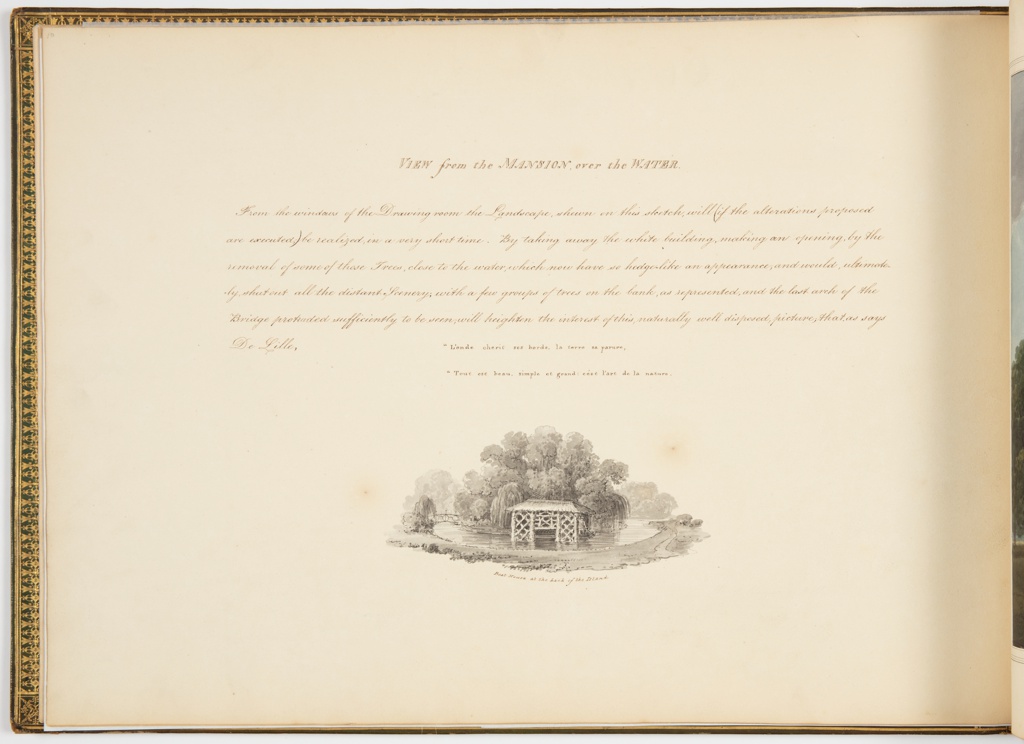 VIEW from the MANSION, over the WATER.
From the windows of the Drawing room the Landscape, shewn on this sketch, will (if the alterations proposed
are executed) be realized, in a very short time. By taking away the white building, making an opening, by the
removal of some of those Trees, close to the water, which now have so hedge-like an appearance, and would, ultimate-
ly, shut out all the distant Scenery; with a few groups of trees on the bank, as represented, and the last arch of the
Bridge protruded sufficiently to be seen, will heighten the interest of this, naturally well disposed, picture; that, as says
De Lille,
"L'onde cherit ses bords, la terre sa parure,
"Tout est beau, simple et grand: c'est l'art de la nature.
Boat House at the back of the Island